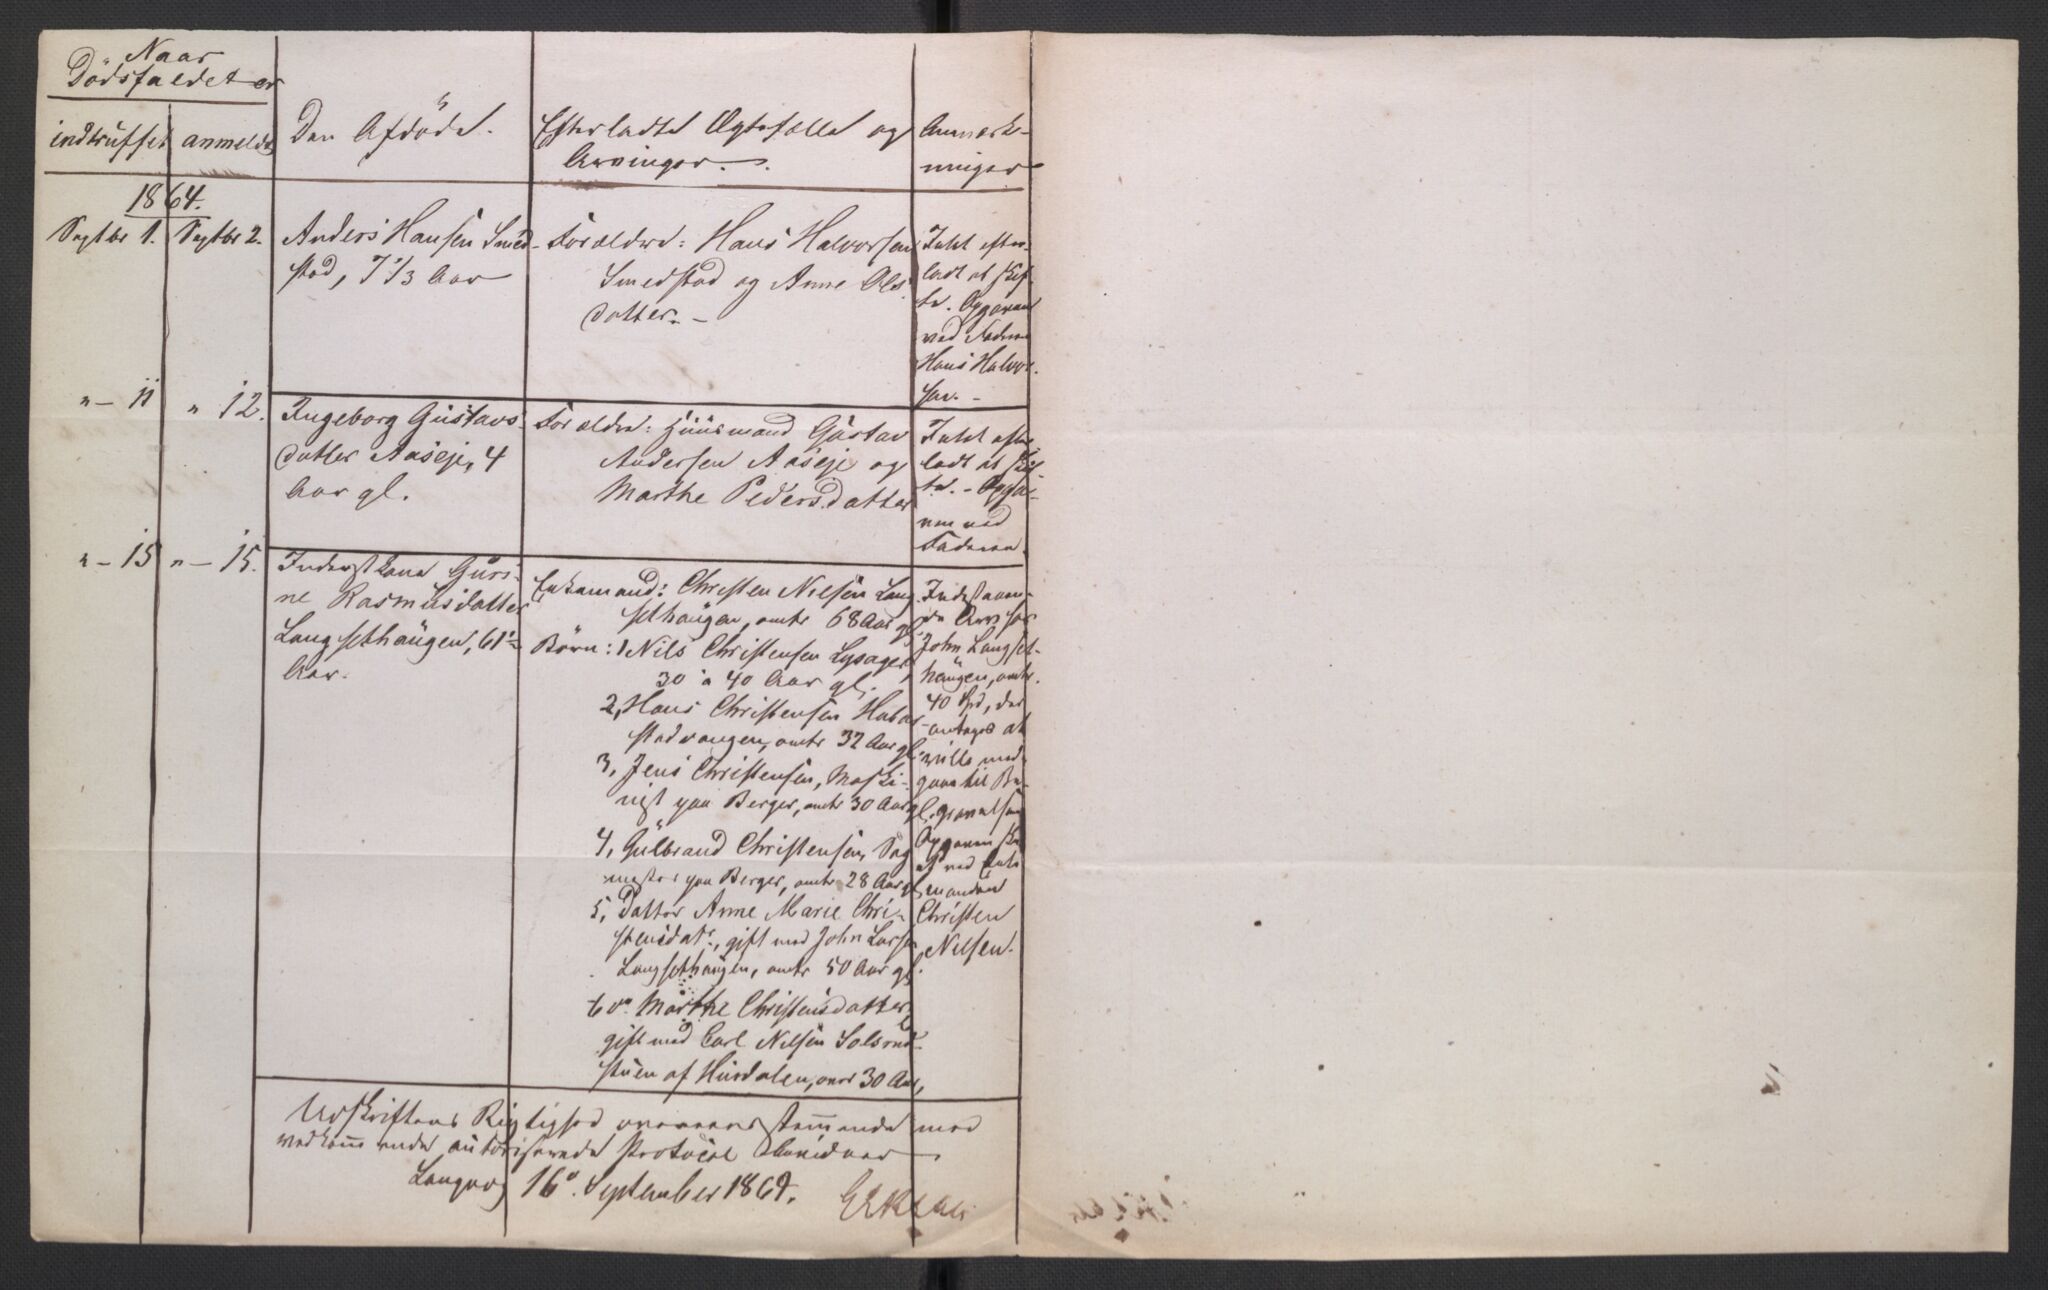 Naar
Dödsfaldet er
indtruffet
anmeldt
Den Afdöde.
Efterladte Ægtefælle og
Arvinger.
Anmærk-
ninger
1864.
Septbr 1.
Septbr 2.
Anders Hansen Smed-
stad, 7 1/3 Aar
Forældre: Hans Halvorsen
Smedstad og Anne Ols
datter. -
Intet efter-
ladt at skif-
te. Opgaven
ved Faderen
Hans Halvor-
sen. -
" - 11
" 12.
Ingeborg Gustavs-
datter Aaseje, 4
Aar gl.
Forældre: Huusmand Gustav
Andersen Aaseje og
Marthe Pedersdatter
Intet efter-
ladt at skif-
te. - Opga-
ven ved
Faderen.
" - 15
" - 15.
Inderstkone Guri-
ne Rasmusdatter
Langsethaugen, 61
Aar.
Enkemand: Christen Nilsen Lang
sethaugen, omtr 68 Aar gl.
Börn: 1 Nils Christensen Lysager
30 a 40 Aar gl.
2, Hans Christensen
omtr 32 Aar gl.
3, Jens Christensen, Maski-
nist paa Berger, omtr 30 Aar gl.
4, Gulbrand Christensen, Sag
mester paa Berger, omtr 28 Aar gl
5, Datter Anne Marie Chri-
stensdatr., gift med John Larsen
Langsethaugen, omtr 50 Aar gl.
6 do Marthe Christensdatter,
gift med Carl Nilsen Solsrud-
stuen af Hurdalen, over 30 Aar,
Indestaaen-
de Arv hos
John Langset-
haugen, omtr.
40 Spd, der
antages at
ville med-
gaa til Be-
gravelsen
Opgaven ske-
et ved Enke
manden
Christen
Nilsen.
Udskriftens Rigtighed overensstemmende med
vedkommende autoriserede Protocol bevidner
Langset 16de September 1864.